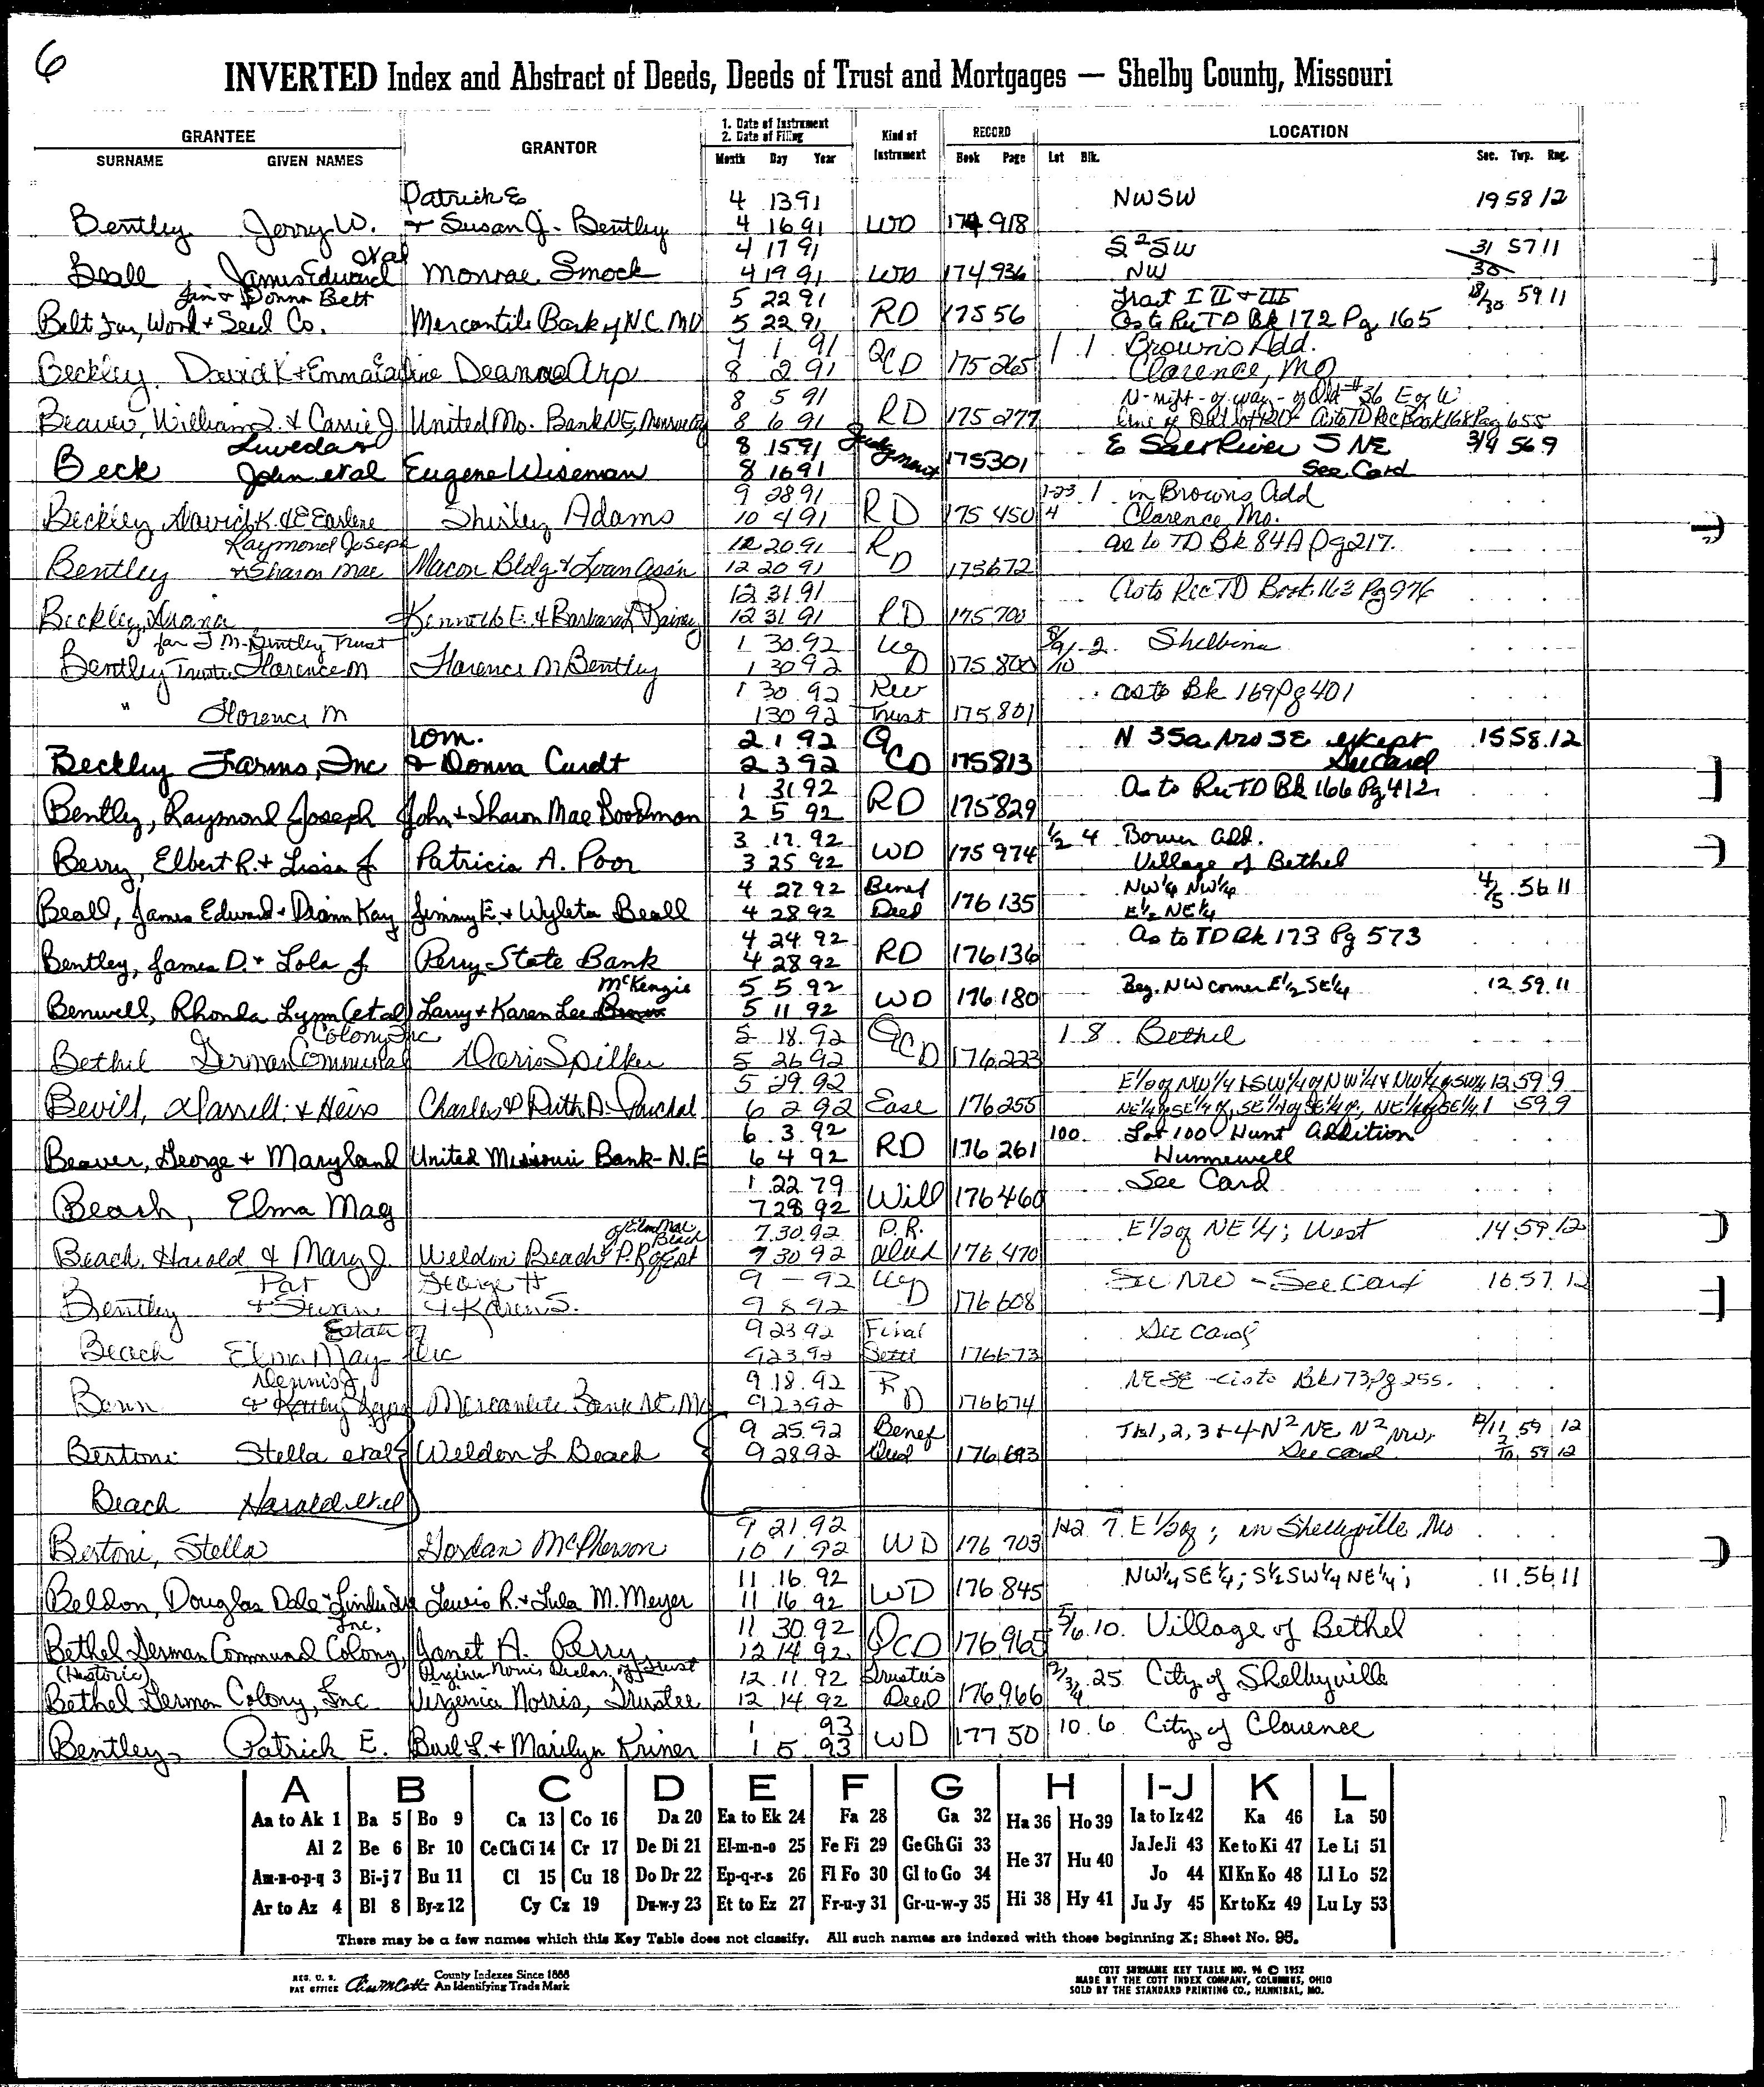 6
INVERTED Index and Abstract of Deeds, Deeds of Trust and Mortgages — Shelby County, Missouri
GRANTEE GRANTOR 1. Date of Instrument 2. Date of Filing Kind of Instrument RECORD LOCATION
SURNAME GIVEN NAMES Month Day Year Book Page Lot Blk. Sec. Twp. Rng.
Patrick E 4 13 91 NWSW 19 58 12
Bentley Jerry W. + Susan J. Bentley 4 16 91 WD 174 918
etal 4 17 91 S²SW 31 57 11
Beall James Edward Monroe Smock 4 19 91 WD 174 936 NW 30
Jim & Donna Belt 5 22 91 Tract I II + III 18/30 59 11
Belt Fur, Wool + Seed Co. Mercantile Bank of N.C. MO 5 22 91 RD 175 56 As to Re TD Bk 172 Pg 165
7 1 91 1 1 Brown's Add.
Beckley, David K + Emma Deanna Arp 8 2 91 QCD 175 265 Clarence, MO
8 5 91 N-right-of-way-of Old #36 E of W
Beaver, William & Carrie J United Mo. Bank NE, 8 6 91 RD 175 277 line of As to TD Rec Book 168 Pag 655
8 15 91 E Salt River S NE 3/4 56 9
Beck John etal Eugene Wiseman 8 16 91 Judgment 175 301 See Card
9 28 91 1-23 1 in Browns Add
Beckley, David K. & E Earlene Shirley Adams 10 4 91 RD 175 450 4 Clarence, Mo.
Raymond Joseph 12 20 91 as to TD Bk 84A Pg 217.
Bentley + Sharon Mae Macon Bldg + Loan Ass'n 12 20 91 RD 175 672
12 31 91 As to Rec TD Book 163 Pg 976
Beckley, Kenneth E. & Barbara L Rainey 12 31 91 RD 175 700
for J M. Bentley Trust 1 30 92 8/9/10 - 2. Shelbina
Bentley Trustee Florence M Florence M Bentley 1 30 92 WD 175 800
1 30 92 Rev as to Bk 169 Pg 401
" Florence M 1 30 92 Trust 175 801
Tom. 2 1 92 N 35a NW SE except 15 58 12
Beckley Farms, Inc & Donna Curdt 2 3 92 QCD 175 813 See Card
1 31 92 As to Re TD Bk 166 Pg 412
Bentley, Raymond Joseph John + Sharon Mae Boodman 2 5 92 RD 175 829
3 17 92 1/2 4 Bower Add.
Berry, Elbert R. + Lissa J. Patricia A. Poor 3 25 92 WD 175 974 Village of Bethel
4 27 92 Benef NW¼ NW¼ 4/5 56 11
Beall, James Edward + Diann Kay Jimmy E. + Wyleta Beall 4 28 92 Deed 176 135 E½ NE¼
4 24 92 As to TD Bk 173 Pg 573
Bentley, James D. + Lola J. Perry State Bank 4 28 92 RD 176 136
McKenzie 5 5 92 Beg. NW corner E½ SE¼ 12 59 11
Benwell, Rhonda Lynn (etal) Larry + Karen Lee 5 11 92 WD 176 180
Colony Inc 5 18 92 1 8 Bethel
Bethel German Communal Doris Spilker 5 26 92 QCD 176 223
5 29 92 E½ of NW¼ & SW¼ of NW¼ & NW¼ of SW¼ 12 59 9
Bevill, Darrell & Heirs Charles & Ruth A. Paschal 6 2 92 Ease 176 255 NE¼ of SE¼ of, SE¼ of SE¼ of, NE¼ of SE¼ 1 59 9
6 3 92 100 Lot 100 Hunt Addition
Beaver, George + Maryland United Missouri Bank-N.E 6 4 92 RD 176 261 Hunnewell
1 22 79 See Card
Beach, Elma May 7 28 92 Will 176 460
of Elma Mae Beach 7 30 92 P.R. E½ of NE¼; West 14 59 12
Beach, Harold & Mary J. Weldon Beach P.R of Est 7 30 92 Deed 176 470
Pat George H 9 – 92 NW - See Card 16 57 12
Bentley + Susan & Karen S. 9 8 92 WD 176 608
Estate of 9 23 92 Final See Card
Beach Elma May - Dec 9 23 92 Settl 176 673
Dennis J. 9 18 92 NE SE - as to Bk 173 Pg 255.
Benn & Kathy Mercantile Bank NE Mo 9 23 92 RD 176 674
9 25 92 Benef Tr 1, 2, 3 + 4 - N² NE, N² NW, 12/11 59 12
Bertoni Stella etal Weldon L Beach 9 28 92 Deed 176 693 See Card 59 12
Beach Harold etal
9 21 92 1+2 7. E½ of; in Shelbyville, Mo
Bertoni, Stella Gordan McPherson 10 1 92 WD 176 703
11 16 92 NW¼ SE¼; S½ SW¼ NE¼; 11 56 11
Beldon, Douglas Dale + Linda Lewis R. + Lula M. Meyer 11 16 92 WD 176 845
Inc. 11 30 92 5/6 10. Village of Bethel
Bethel German Communal Colony, Janet A. Perry 12 14 92 QCD 176 965
(Historic) Virginia Norris Declar. of Trust 12 11 92 Trustee's 25 City of Shelbyville
Bethel German Colony, Inc Virginia Norris, Trustee 12 14 92 Deed 176 966
1 93 10 6 City of Clarence
Bentley, Patrick E. Burl L. + Marilyn Kriner 1 5 93 WD 177 50
A B C D E F G H I-J K L
Aa to Ak 1 Ba 5 Bo 9 Ca 13 Co 16 Da 20 Ea to Ek 24 Fa 28 Ga 32 Ha 36 Ho 39 Ia to Iz 42 Ka 46 La 50
Al 2 Be 6 Br 10 Ce Ch Ci 14 Cr 17 De Di 21 El-m-n-o 25 Fe Fi 29 Ge Gh Gi 33 He 37 Hu 40 Ja Je Ji 43 Ke to Ki 47 Le Li 51
Am-n-o-p-q 3 Bi-j 7 Bu 11 Cl 15 Cu 18 Do Dr 22 Ep-q-r-s 26 Fl Fo 30 Gl to Go 34 Hi 38 Hy 41 Jo 44 Kl Kn Ko 48 Ll Lo 52
Ar to Az 4 Bl 8 By-z 12 Cy Cz 19 Du-w-y 23 Et to Ez 27 Fr-u-y 31 Gr-u-w-y 35 Ju Jy 45 Kr to Kz 49 Lu Ly 53
There may be a few names which this Key Table does not classify. All such names are indexed with those beginning X; Sheet No. 96.
REG. U. S. PAT OFFICE County Indexes Since 1888 An Identifying Trade Mark
COTT SURNAME KEY TABLE NO. 96 © 1952
MADE BY THE COTT INDEX COMPANY, COLUMBUS, OHIO
SOLD BY THE STANDARD PRINTING CO., HANNIBAL, MO.